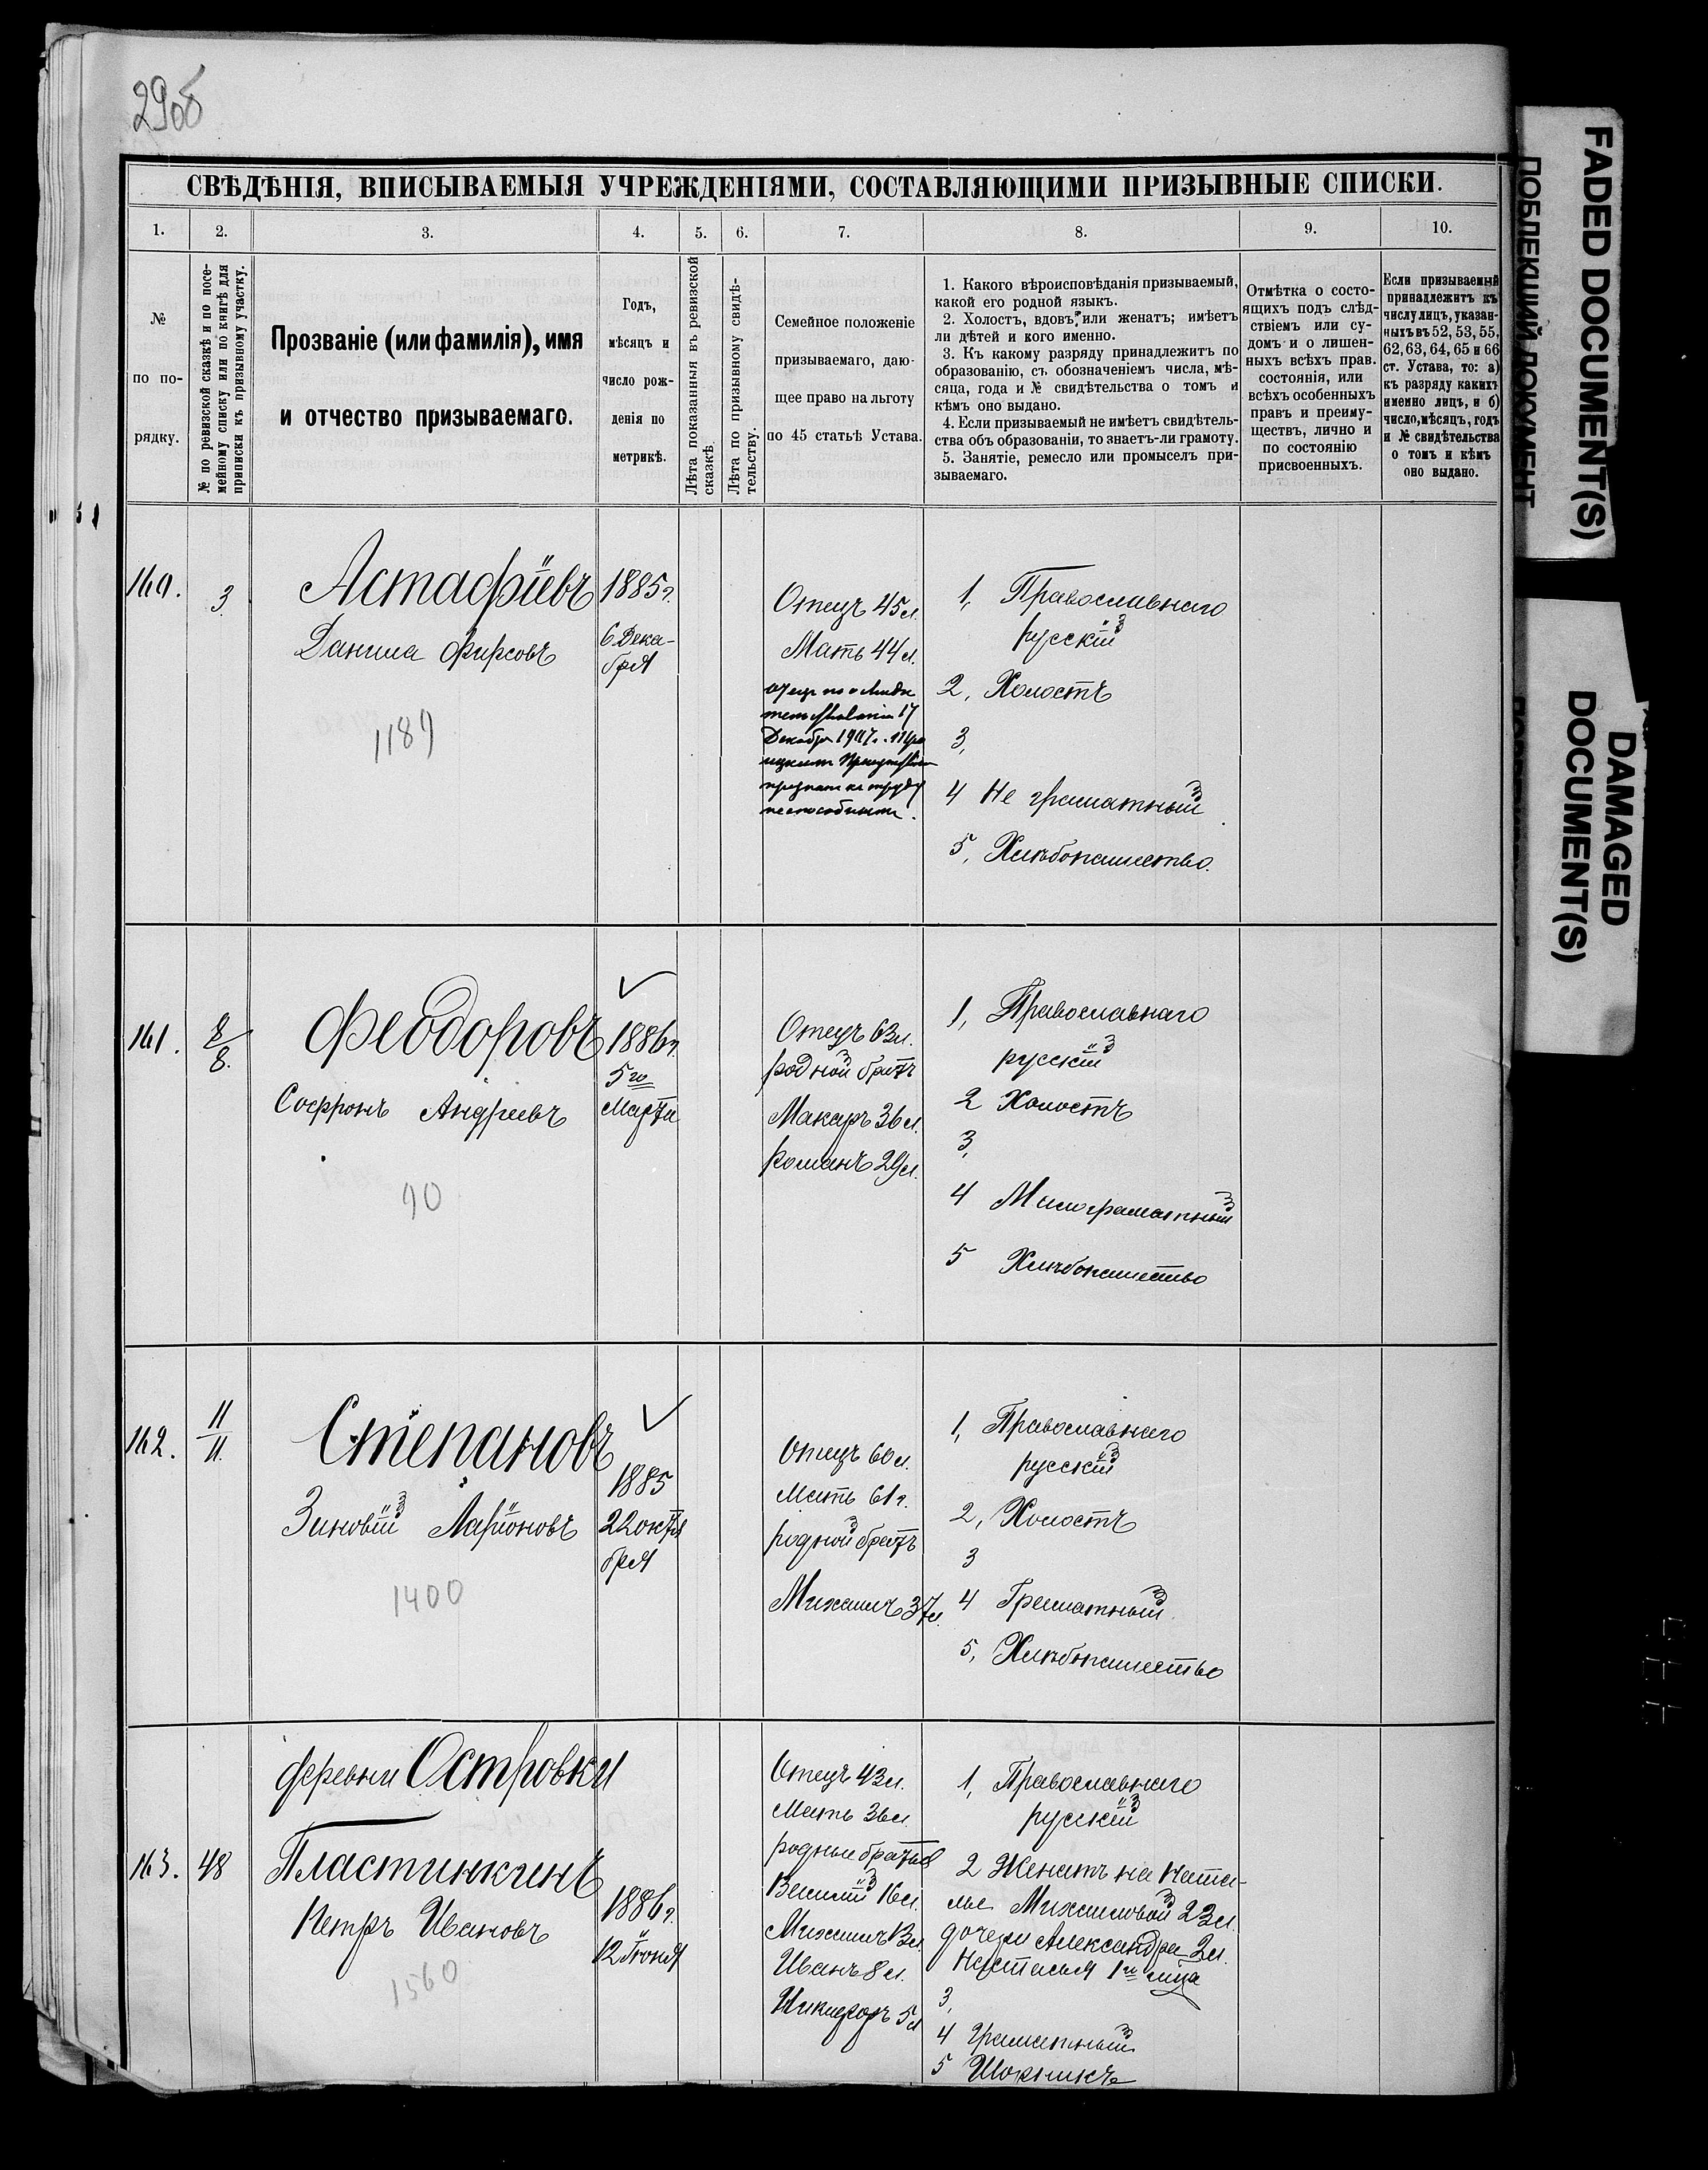 29об
СВѢДѢНІЯ, ВПИСЫВАЕМЫЯ УЧРЕЖДЕНІЯМИ, СОСТАВЛЯЮЩИМИ ПРИЗЫВНЫЕ СПИСКИ.
1. 2. 3. 4. 5. 6. 7. 8. 9. 10.
№
по по-
рядку.
№ по ревизской сказкѣ и по посе-
мейному списку или по книгѣ для
приписки къ призывному участку.
Прозваніе (или фамилія), имя
и отчество призываемаго.
Годъ,
мѣсяцъ и
число рож-
денія по
метрикѣ.
Лѣта показанныя въ ревизской
сказкѣ.
Лѣта по призывному свидѣ-
тельству.
Семейное положеніе
призываемаго, даю-
щее право на льготу
по 45 статьѣ Устава.
1. Какого вѣроисповѣданія призываемый,
какой его родной языкъ.
2. Холостъ, вдовъ, или женатъ; имѣетъ
ли дѣтей и кого именно.
3. Къ какому разряду принадлежитъ по
образованію, съ обозначеніемъ числа, мѣ-
сяца, года и № свидѣтельства о томъ и
кѣмъ оно выдано.
4. Если призываемый не имѣетъ свидѣтель-
ства объ образованіи, то знаетъ-ли грамоту.
5. Занятіе, ремесло или промыселъ при-
зываемаго.
Отмѣтка о состо-
ящихъ подъ слѣд-
ствіемъ или су-
домъ и о лишен-
ныхъ всѣхъ прав.
состоянія, или
всѣхъ особенныхъ
правъ и преиму-
ществъ, лично и
по состоянію
присвоенныхъ.
Если призываемый
принадлежитъ къ
числу лицъ, указан-
ныхъ въ 52, 53, 55,
62, 63, 64, 65 и 66
ст. Устава, то: а)
къ разряду какихъ
именно лицъ, и б)
число, мѣсяцъ, годъ
и № свидѣтельства
о томъ и кѣмъ
оно выдано.
160.
3
Астафіевъ
Данила Фирсовъ
1189
1885г.
6 Дека-
бря
Отецъ 45л.
Мать 44л.
Декабря 1907г.
признанъ къ труду
неспособнымъ.
1, Православнаго
русскій
2, Холостъ
3,
4 Не граматный
5, Хлѣбопашество.
161.
8/8.
Феодоровъ
Софронъ Андреевъ
90
1886г.
5го
Марта
Отецъ 63л.
родной братъ
Макаръ 36л.
Романъ 29л.
1, Православнаго
русскій
2 Холостъ
3,
4 Малограматный
5 Хлѣбопашество
162.
11/11.
Степановъ
Зиновій Ларіоновъ
1400
1885
22 октя
бря
Отецъ 60л.
Мать 61г.
родной братъ
Михаилъ 37л.
1, Православнаго
русскій
2, Холостъ
3
4 Граматный
5, Хлѣбопашество
деревни Островки
163.
48
Пластинкинъ
Петръ Ивановъ
1560
1886г.
12 Іюня
Отецъ 43л.
Мать 36л.
родные братья
Василій 16л.
Михаилъ 13л.
Иванъ 8л.
Никифоръ 5л
1, Православнаго
русскій
2 Женатъ на Ната-
лье Михаиловой 23л.
дочери Александра 2л.
Настасья 1го мѣсца
3,
4 Граматный
5 Шорникъ
FADED DOCUMENT(S)
ПОБЛЕКШИЙ ДОКУМЕНТ
DAMAGED
DOCUMENT(S)